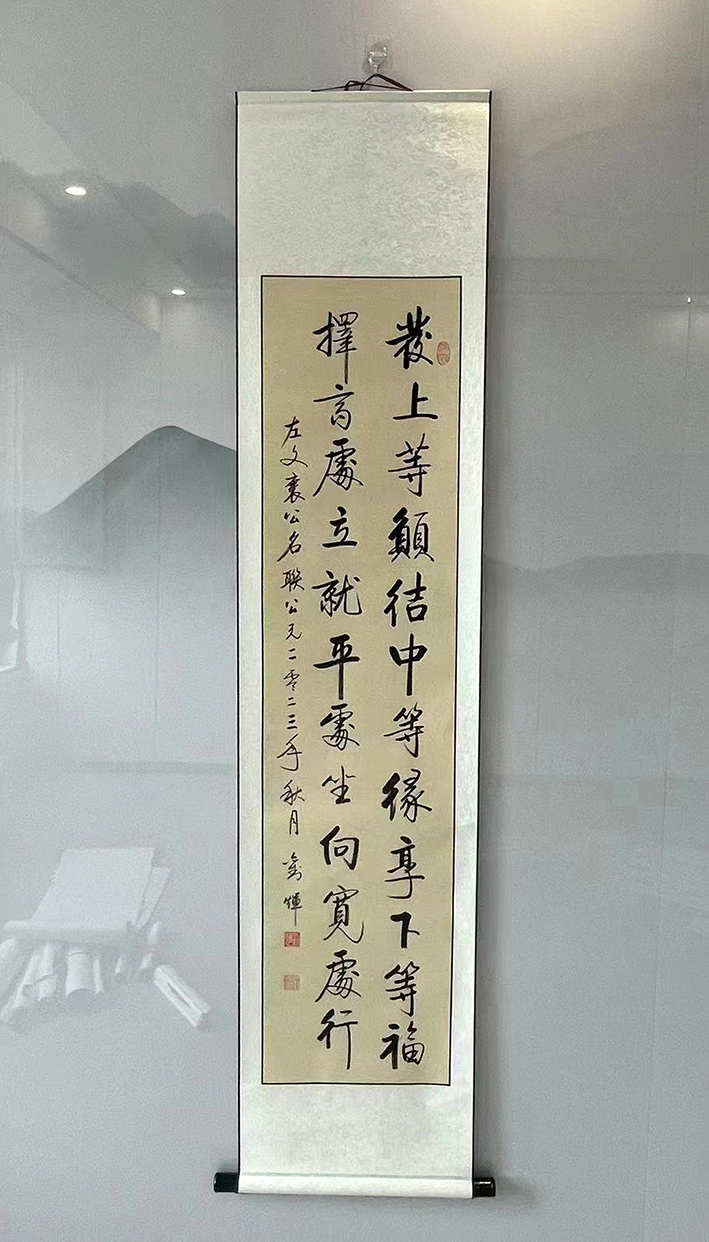 發上等願結中等緣享下等福
擇高處立就平處坐向寬處行
左文襄公名聯公元二零二三年秋月